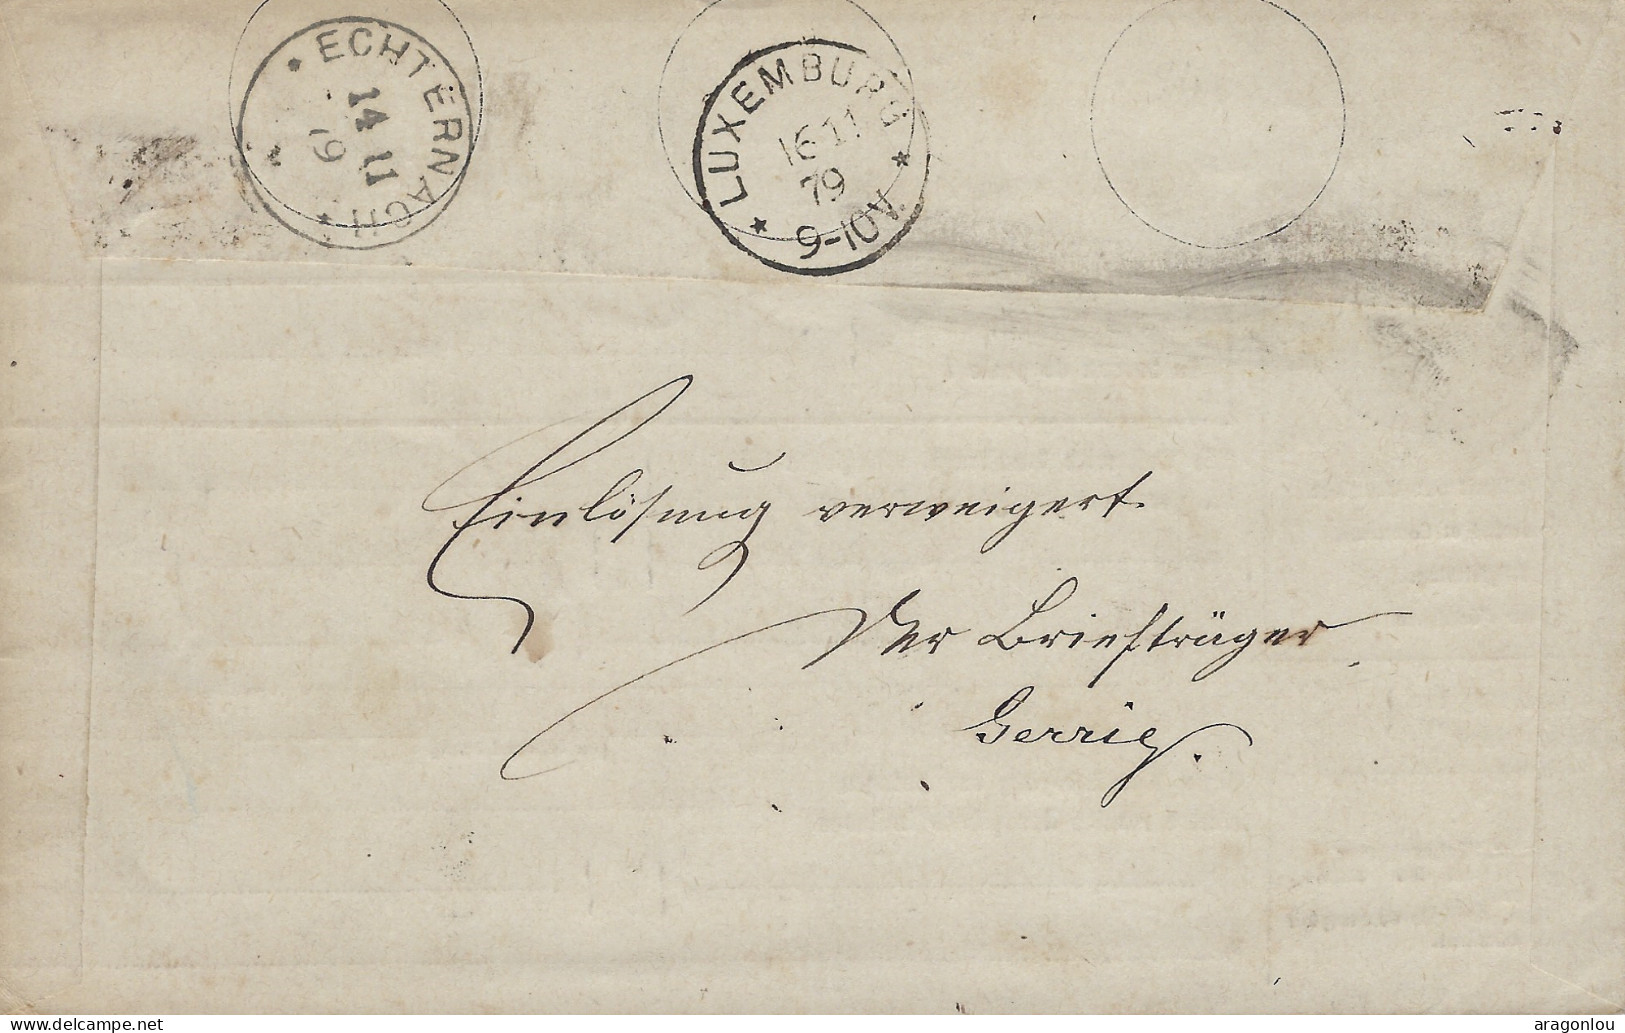 * ECHTERNACH *
14 11
79
* LUXEMBURG *
16 11
79
9-10V.
Einlösung verweigert.
Der Briefträger
Gerrig.
delcampe.net
aragonlou